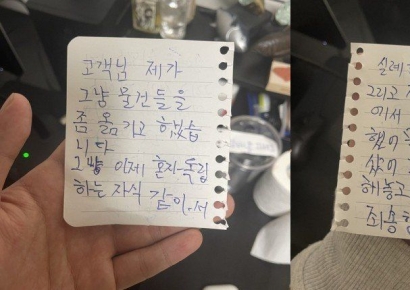 고객님 제가
그냥 물건들을
좀 옮기고 하였습
니다
그냥 이제 혼자 독립
하는 자식 같아서
실례
그리고
어서
했어
샀어
해놓고
죄송